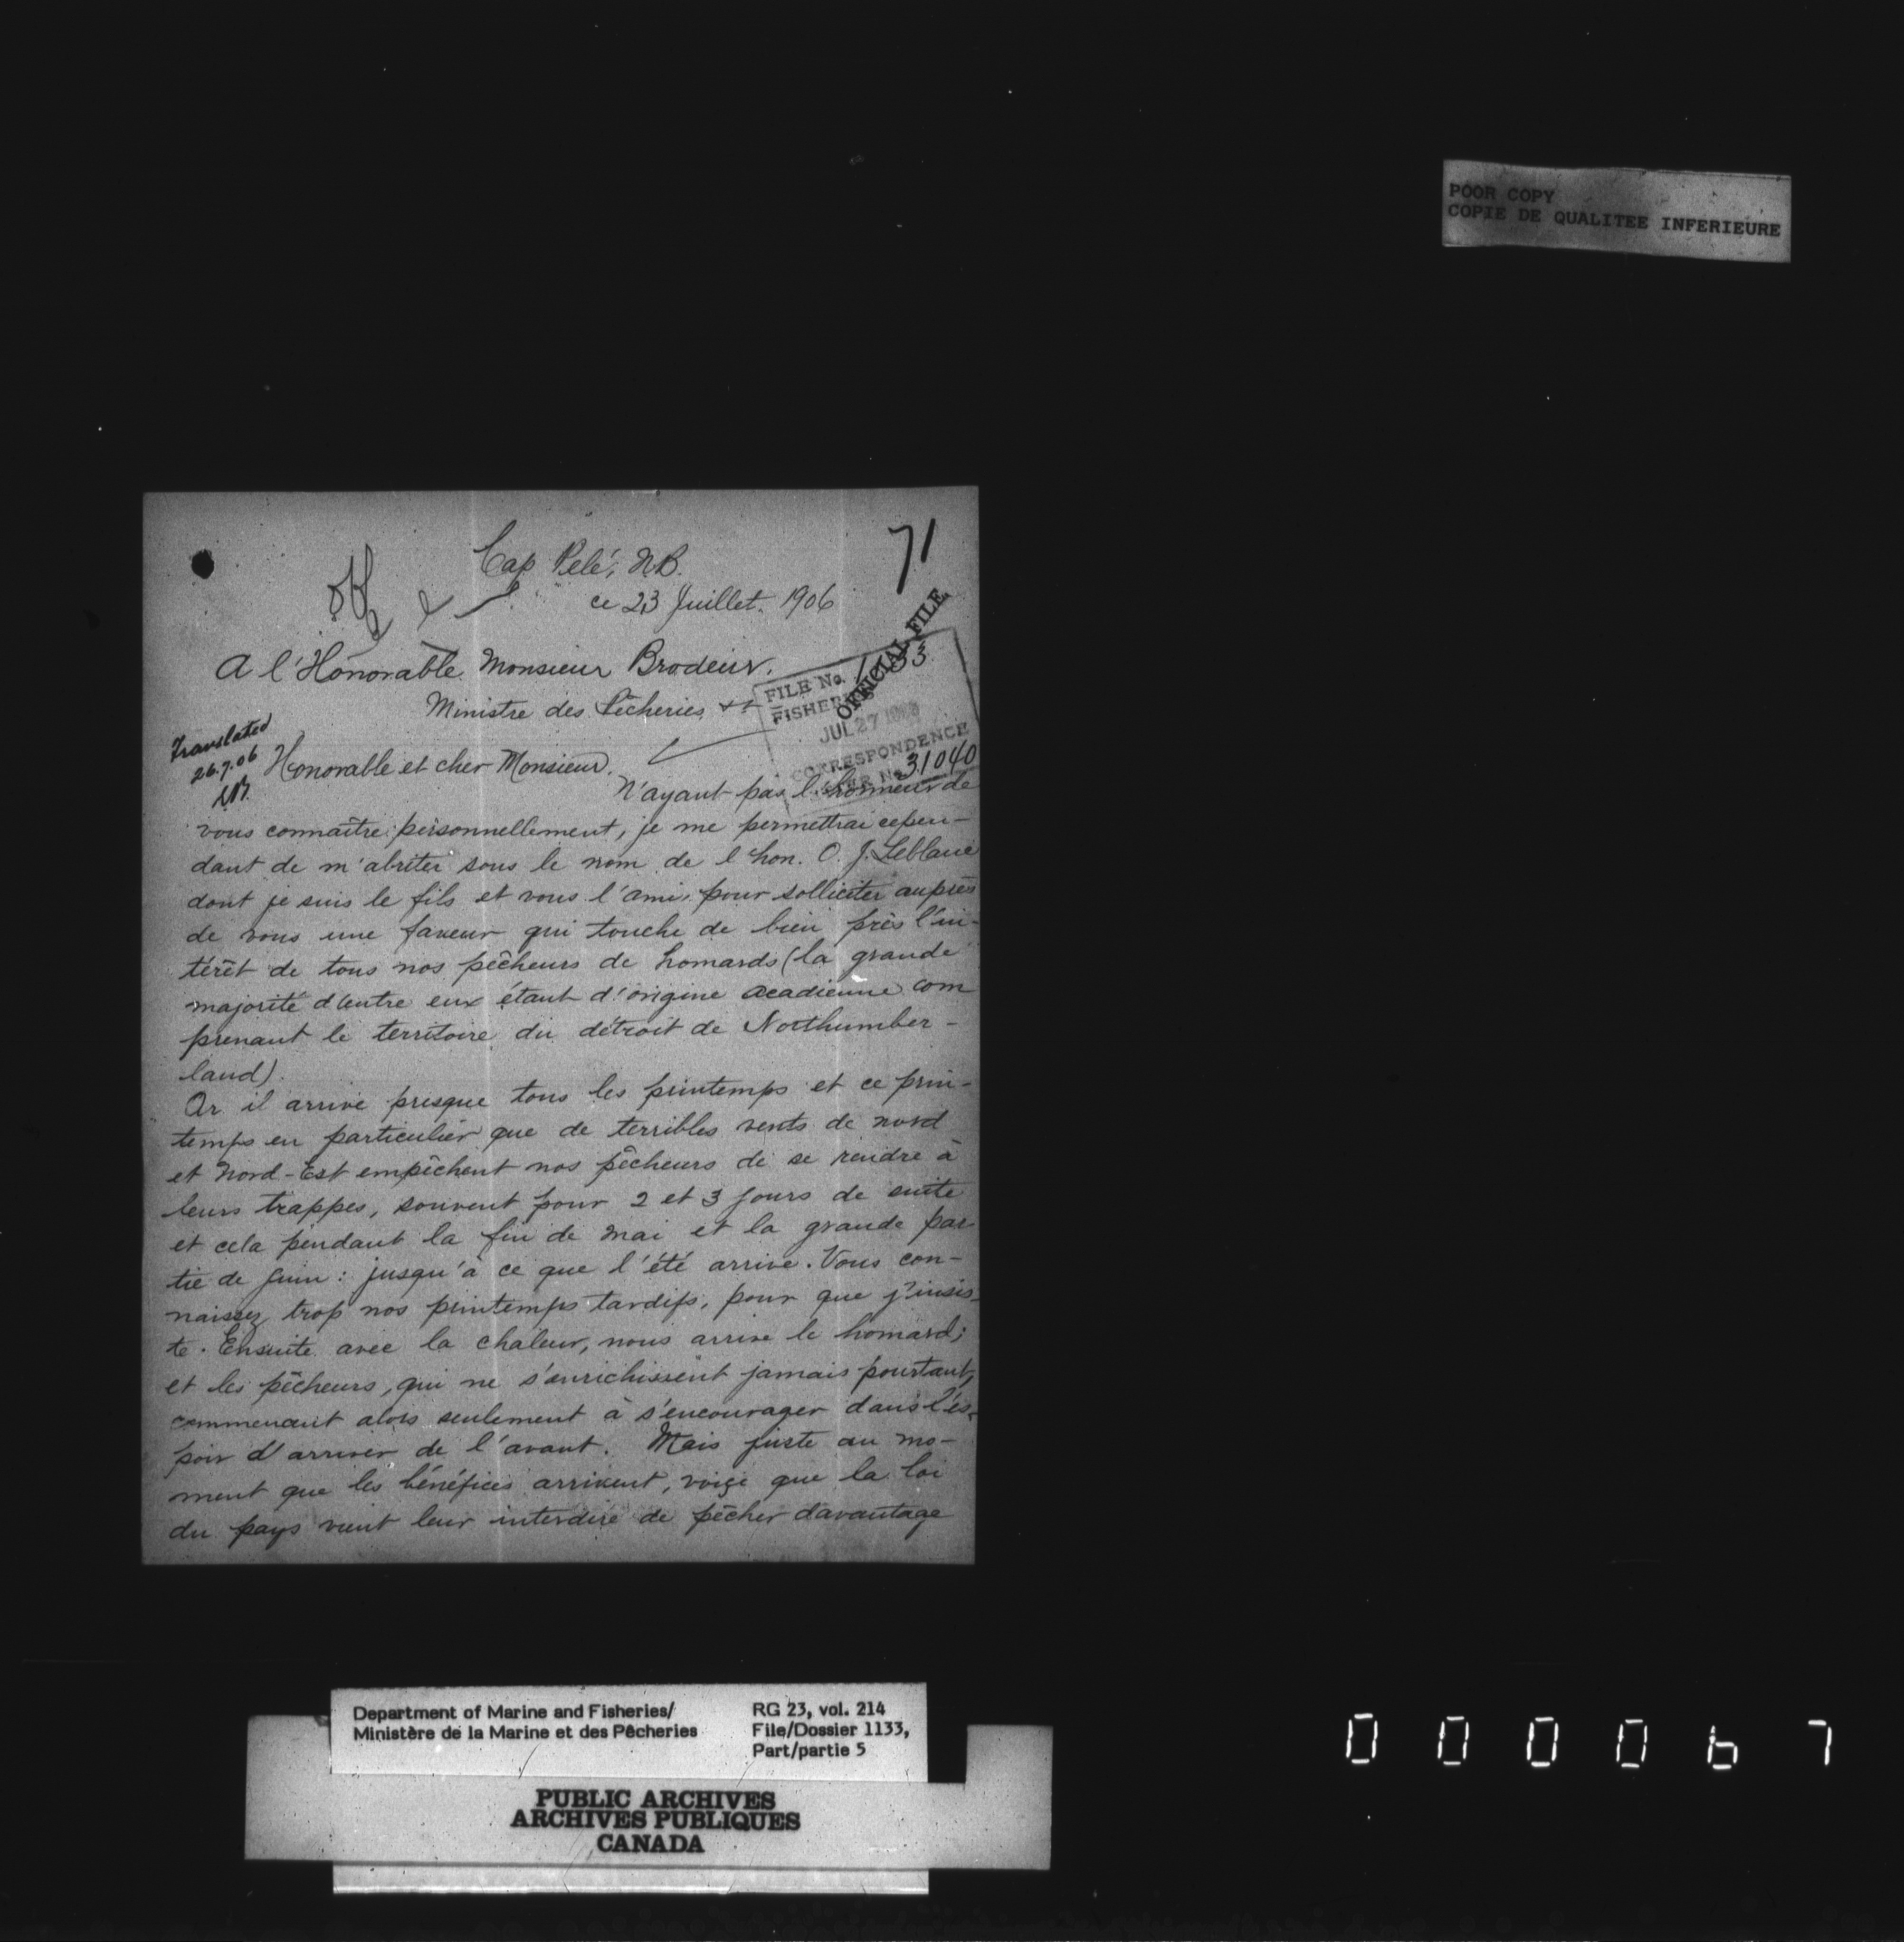 POOR COPY
COPIE DE QUALITEE INFERIEURE
71
Cap Pelé, N.B.
ce 23 Juillet. 1906
A l'Honorable Monsieur Brodeur,
Ministre des Pêcheries
OFFICIAL FILE
FILE No. 1133
FISHERIES
JUL 27 1906
CORRESPONDENCE
No. 31040
Translated
26.7.06
Honorable et cher Monsieur,
N'ayant pas l'honneur de
vous connaître personnellement, je me permettrai cepen-
dant de m'abriter sous le nom de l'hon. O. J. Leblanc
dont je suis le fils et vous l'ami, pour solliciter auprès
de vous une faveur qui touche de bien près l'in-
térêt de tous nos pêcheurs de homards (la grande
majorité d'entre eux étant d'origine acadienne com
prenant le territoire du détroit de Northumber-
land).
Or il arrive presque tous les printemps et ce prin-
temps en particulier que de terribles vents de nord
et Nord-Est empêchent nos pêcheurs de se rendre à
leurs trappes, souvent pour 2 et 3 jours de suite
et cela pendant la fin de mai et la grande par
tie de Juin: jusqu'à ce que l'été arrive. Vous con-
naissez trop nos printemps tardifs, pour que j'insis-
te. Ensuite avec la chaleur, nous arrive le homard;
et les pêcheurs, qui ne s'enrichissent jamais pourtant,
commencent alors seulement à s'encourager dans l'es-
poir d'arriver de l'avant. Mais juste au mo-
ment que les bénéfices arrivent, voiçi que la loi
du pays vient leur interdire de pêcher davantage
Department of Marine and Fisheries/
Ministère de la Marine et des Pêcheries
RG 23, vol. 214
File/Dossier 1133,
Part/partie 5
PUBLIC ARCHIVES
ARCHIVES PUBLIQUES
CANADA
000067